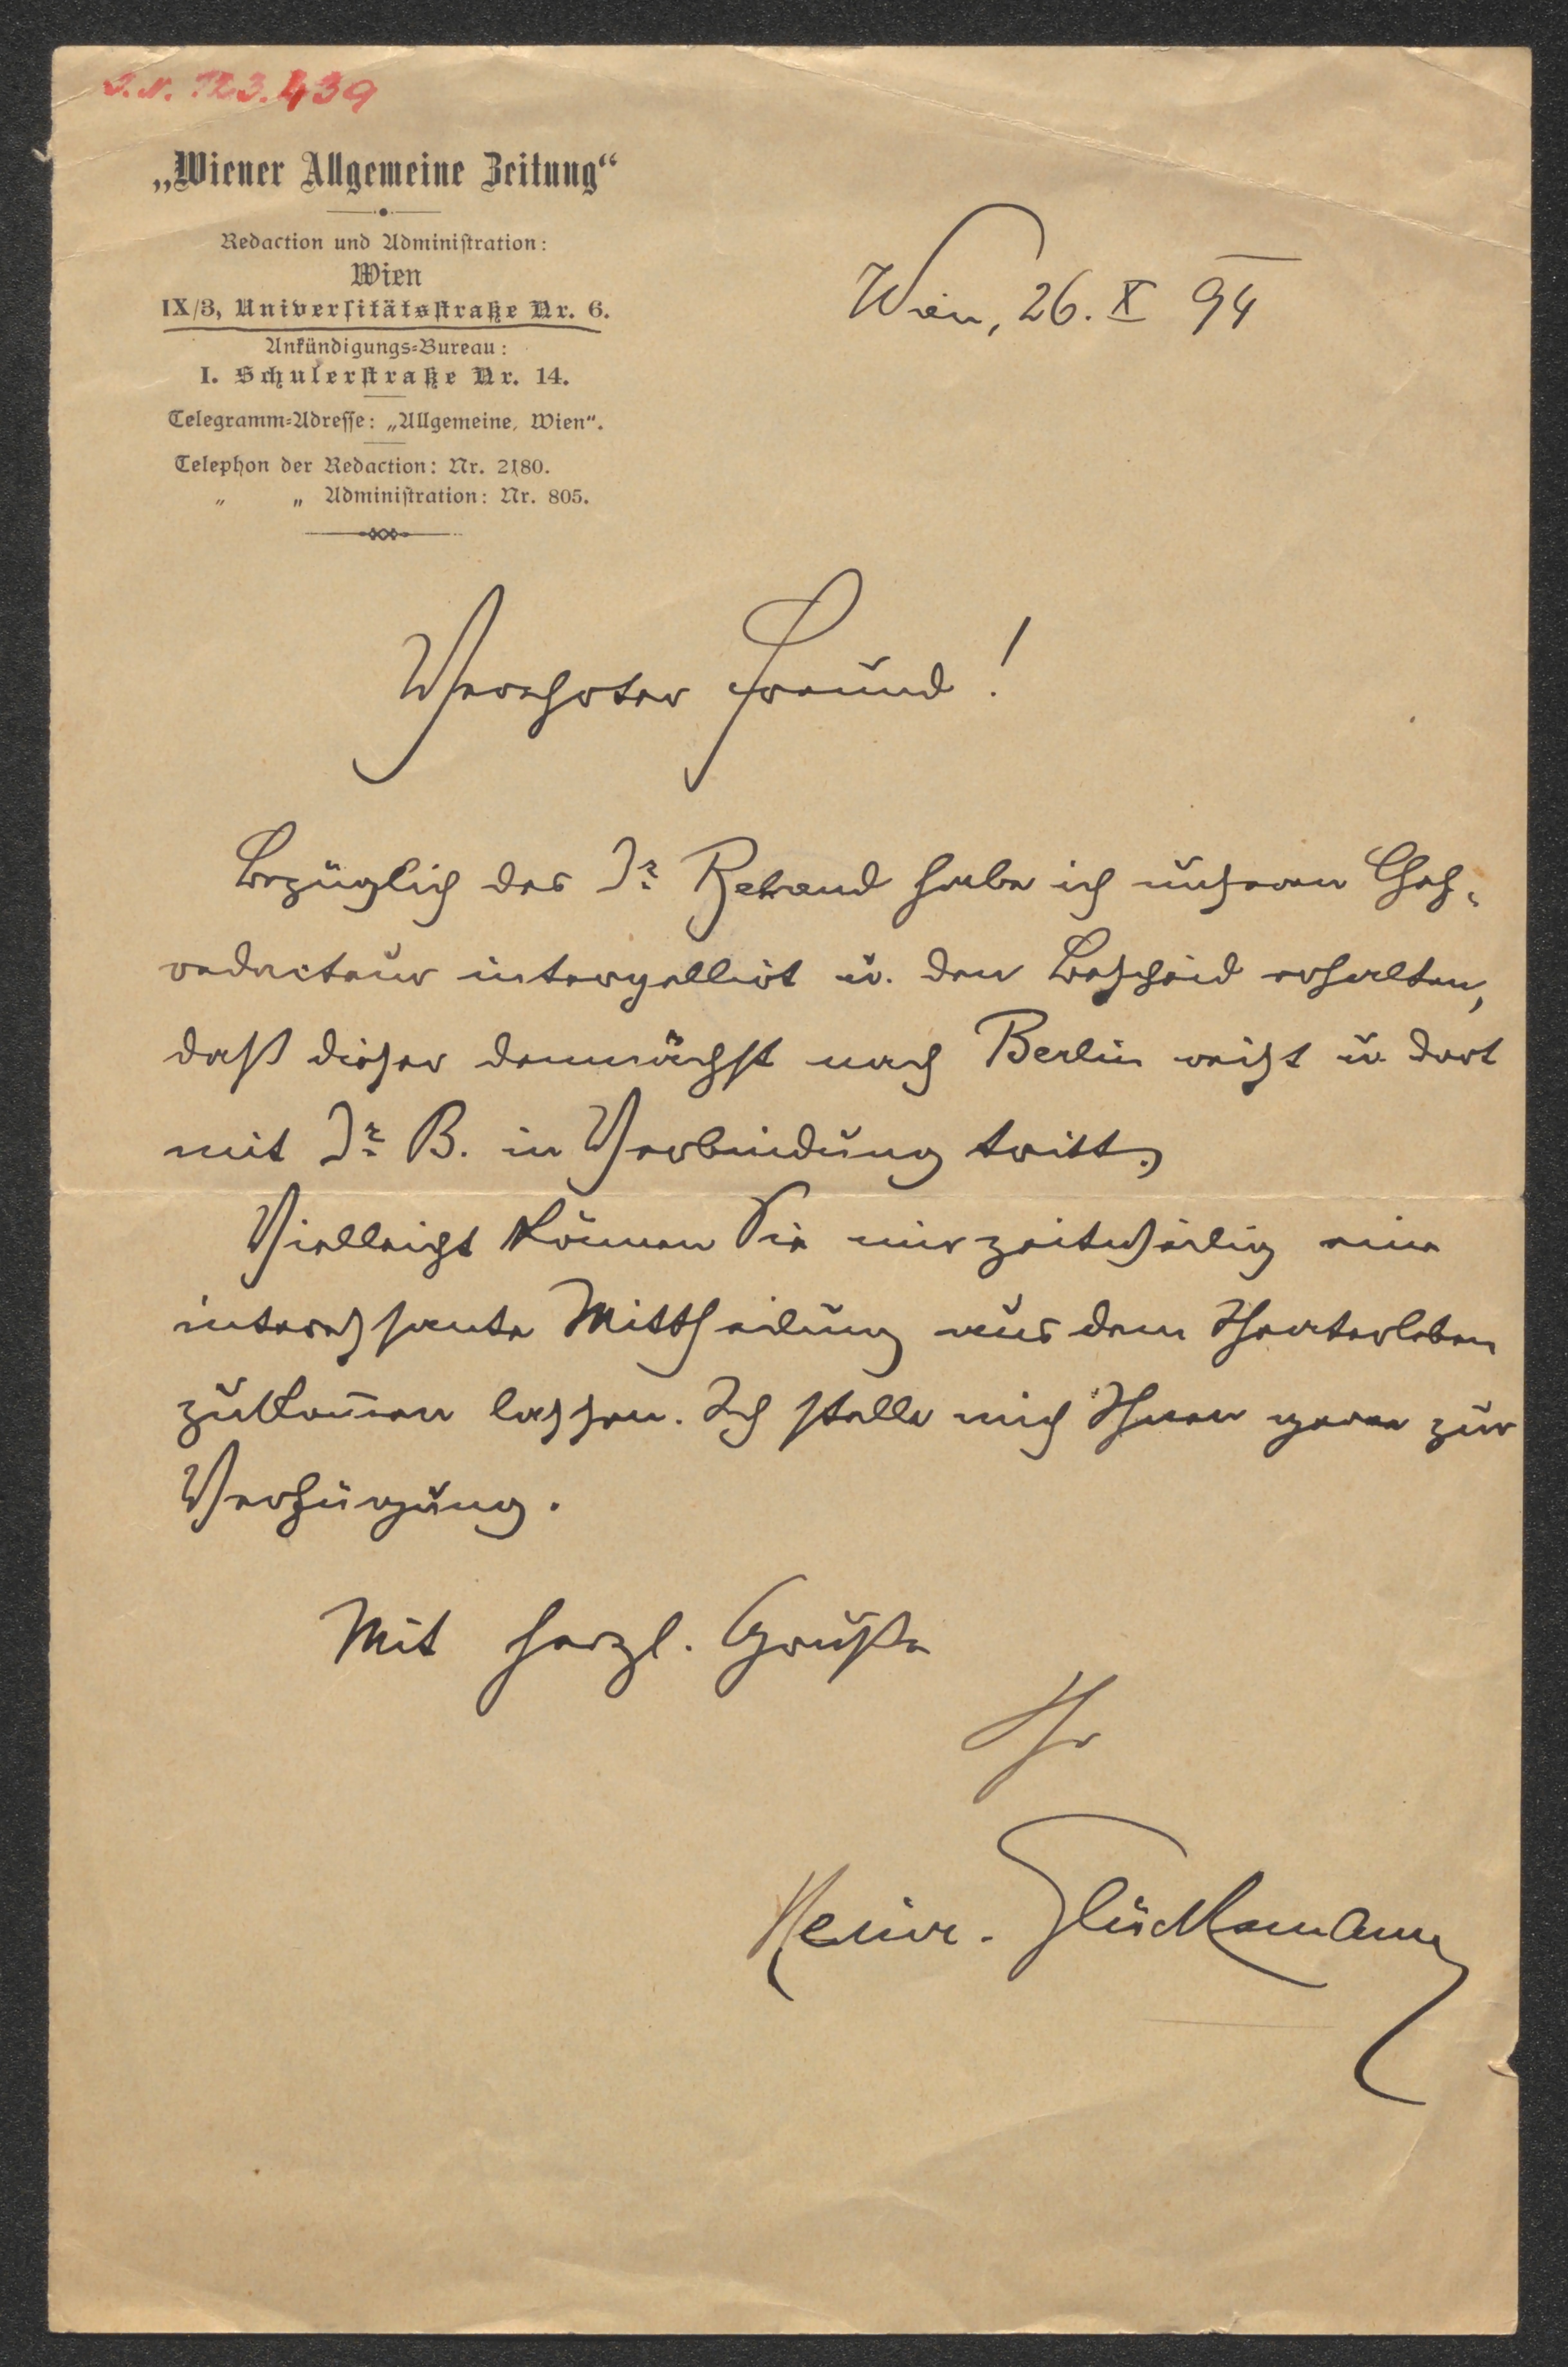 I.N. 123.439
„Wiener Allgemeine Zeitung“
Redaction und Administration:
Wien
IX/3, Universitätsstraße Nr. 6.
Ankündigungs-Bureau:
I. Schulerstraße Nr. 14.
Telegramm-Adresse: „Allgemeine, Wien“.
Telephon der Redaction: Nr. 2180.
„ „ Administration: Nr. 805.
Wien, 26. X 94
Verehrter Freund!
Bezüglich des Dr. habe ich unseren Chef-
redacteur interpellirt u. den Bescheid erhalten,
daß dieser demnächst nach Berlin reist u. dort
mit Dr. B. in Verbindung tritt.
Vielleicht können Sie mir zeitweilig eine
interessante Mittheilung aus dem Theaterleben
zukom̅en lassen. Ich stelle mich Ihnen gerne zur
Verfügung.
Mit herzl. Gruße
Ihr
Heinr. Glücksmann